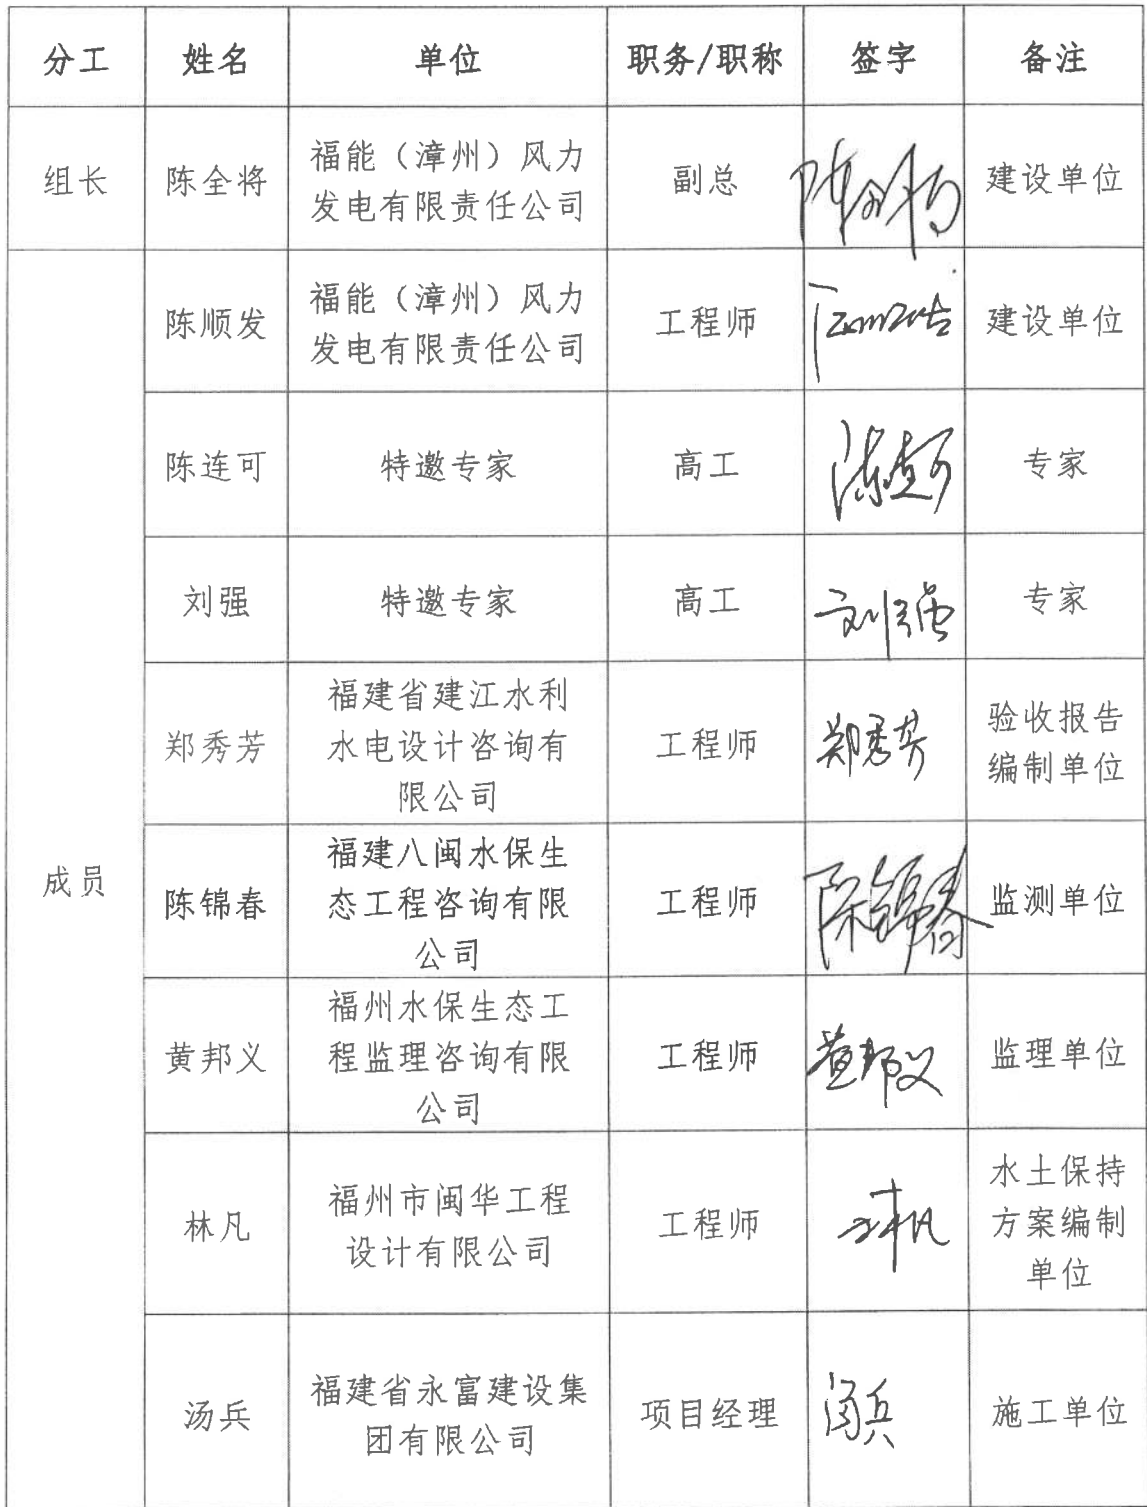 分工 姓名 单位 职务/职称 签字 备注
组长 陈全将 福能（漳州）风力
发电有限责任公司 副总 陈全将 建设单位
陈顺发 福能（漳州）风力
发电有限责任公司 工程师 建设单位
陈连可 特邀专家 高工 陈连可 专家
刘强 特邀专家 高工 刘强 专家
郑秀芳 福建省建江水利
水电设计咨询有
限公司 工程师 郑秀芳 验收报告
编制单位
成员
陈锦春 福建八闽水保生
态工程咨询有限
公司 工程师 陈锦春 监测单位
黄邦义 福州水保生态工
程监理咨询有限
公司 工程师 黄邦义 监理单位
林凡 福州市闽华工程
设计有限公司 工程师 林凡 水土保持
方案编制
单位
汤兵 福建省永富建设集
团有限公司 项目经理 汤兵 施工单位